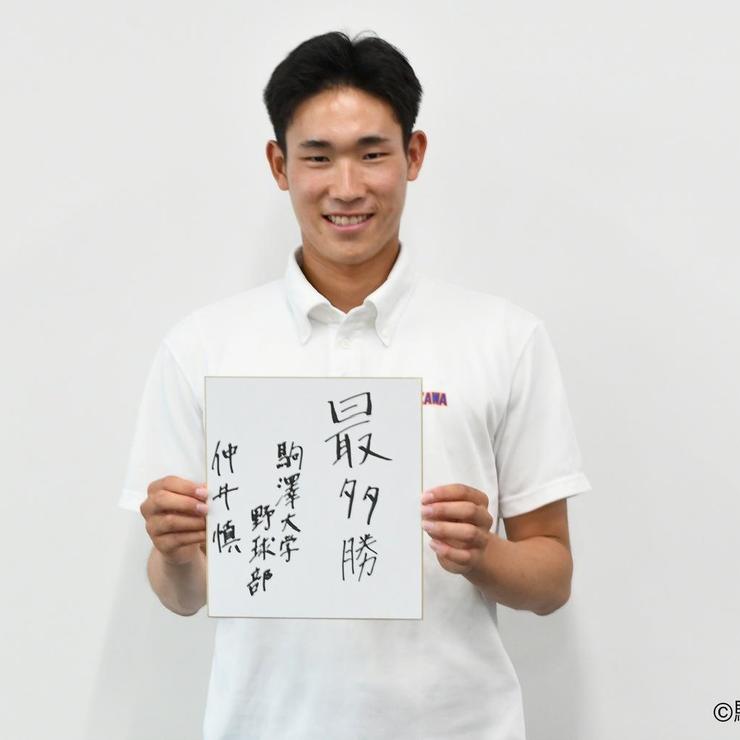 最多勝
駒澤大学
野球部
仲井慎
ZAWA
©駒